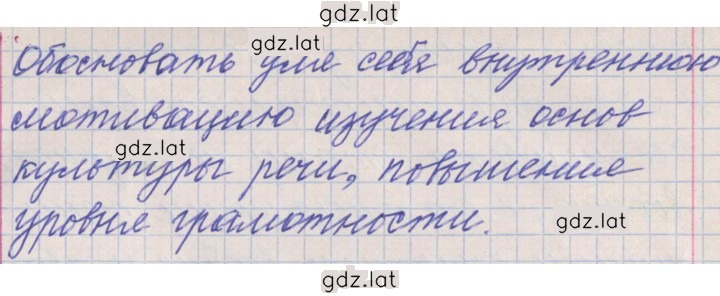 gdz.lat
Обосновать уме себя внутреннюю
gdz.lat
мотивацию изучения основ
gdz.lat
культуры речи, повышения
уровня грамотности.
gdz.lat
gdz.lat